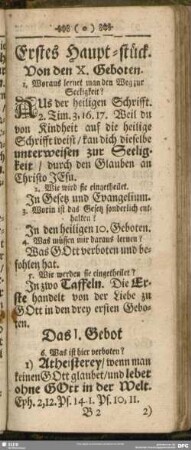 ( o )
Erstes Haupt-stück.
Von den X. Geboten.
1. Woraus lernet man den Weg zur
Seeligkeit?
AUs der heiligen Schrifft.
2. Tim. 3, 16. 17. Weil du
von Kindheit auf die heilige
Schrifft weist / kan dich dieselbe
unterweisen zur Seelig-
keit / durch den Glauben an
Christo JEsu.
2. Wie wird sie eingetheilet.
In Gesetz und Evangelium.
3. Worin ist das Gesetz sonderlich ent-
halten?
In den heiligen 10. Geboten.
4. Was müssen wir daraus lernen?
Was GOtt verboten und be-
fohlen hat.
5. Wie werden sie eingetheilet?
In zwo Taffeln. Die Er-
ste handelt von der Liebe zu
GOtt in den drey ersten Gebo-
ten.
Das 1. Gebot
6. Was ist hier verboten?
1) Atheisterey / wenn man
keinen GOtt glaubet / und lebet
ohne GOtt in der Welt.
Eph. 2, 12. Ps. 14. 1. Ps. 10, 11.
B 2 2)